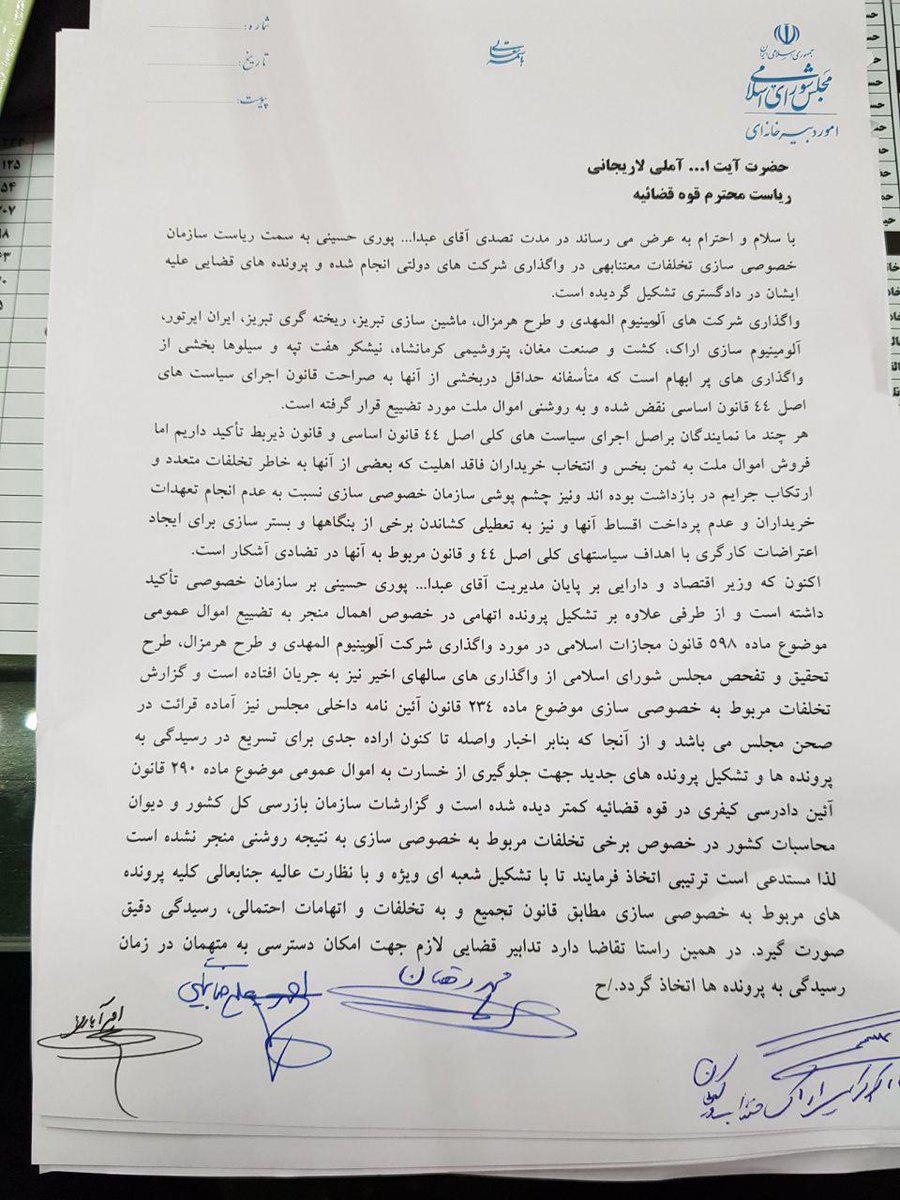 شماره:
تاریخ:
پیوست:
جمهوری اسلامی ایران
مجلس شورای اسلامی
امور دبیرخانه‌ای
حضرت آیت ا... آملی لاریجانی
ریاست محترم قوه قضائیه
با سلام و احترام به عرض می رساند در مدت تصدی آقای عبدا... پوری حسینی به سمت ریاست سازمان
خصوصی سازی تخلفات معتنابهی در واگذاری شرکت های دولتی انجام شده و پرونده های قضایی علیه
ایشان در دادگستری تشکیل گردیده است.
واگذاری شرکت های آلومینیوم المهدی و طرح هرمزال، ماشین سازی تبریز، ریخته گری تبریز، ایران ایرتور،
آلومینیوم سازی اراک، کشت و صنعت مغان، پتروشیمی کرمانشاه، نیشکر هفت تپه و سیلوها بخشی از
واگذاری های پر ابهام است که متأسفانه حداقل دربخشی از آنها به صراحت قانون اجرای سیاست های
اصل ٤٤ قانون اساسی نقض شده و به روشنی اموال ملت مورد تضییع قرار گرفته است.
هر چند ما نمایندگان براصل اجرای سیاست های کلی اصل ٤٤ قانون اساسی و قانون ذیربط تأکید داریم اما
فروش اموال ملت به ثمن بخس و انتخاب خریداران فاقد اهلیت که بعضی از آنها به خاطر تخلفات متعدد و
ارتکاب جرایم در بازداشت بوده اند ونیز چشم پوشی سازمان خصوصی سازی نسبت به عدم انجام تعهدات
خریداران و عدم پرداخت اقساط آنها و نیز به تعطیلی کشاندن برخی از بنگاهها و بستر سازی برای ایجاد
اعتراضات کارگری با اهداف سیاستهای کلی اصل ٤٤ و قانون مربوط به آنها در تضادی آشکار است.
اکنون که وزیر اقتصاد و دارایی بر پایان مدیریت آقای عبدا... پوری حسینی بر سازمان خصوصی تأکید
داشته است و از طرفی علاوه بر تشکیل پرونده اتهامی در خصوص اهمال منجر به تضییع اموال عمومی
موضوع ماده ٥٩٨ قانون مجازات اسلامی در مورد واگذاری شرکت آلومینیوم المهدی و طرح هرمزال، طرح
تحقیق و تفحص مجلس شورای اسلامی از واگذاری های سالهای اخیر نیز به جریان افتاده است و گزارش
تخلفات مربوط به خصوصی سازی موضوع ماده ٢٣٤ قانون آئین نامه داخلی مجلس نیز آماده قرائت در
صحن مجلس می باشد و از آنجا که بنابر اخبار واصله تا کنون اراده جدی برای تسریع در رسیدگی به
پرونده ها و تشکیل پرونده های جدید جهت جلوگیری از خسارت به اموال عمومی موضوع ماده ٢٩٠ قانون
آئین دادرسی کیفری در قوه قضائیه کمتر دیده شده است و گزارشات سازمان بازرسی کل کشور و دیوان
محاسبات کشور در خصوص برخی تخلفات مربوط به خصوصی سازی به نتیجه روشنی منجر نشده است
لذا مستدعی است ترتیبی اتخاذ فرمایند تا با تشکیل شعبه ای ویژه و با نظارت عالیه جنابعالی کلیه پرونده
های مربوط به خصوصی سازی مطابق قانون تجمیع و به تخلفات و اتهامات احتمالی، رسیدگی دقیق
صورت گیرد. در همین راستا تقاضا دارد تدابیر قضایی لازم جهت امکان دسترسی به متهمان در زمان
رسیدگی به پرونده ها اتخاذ گردد./ح